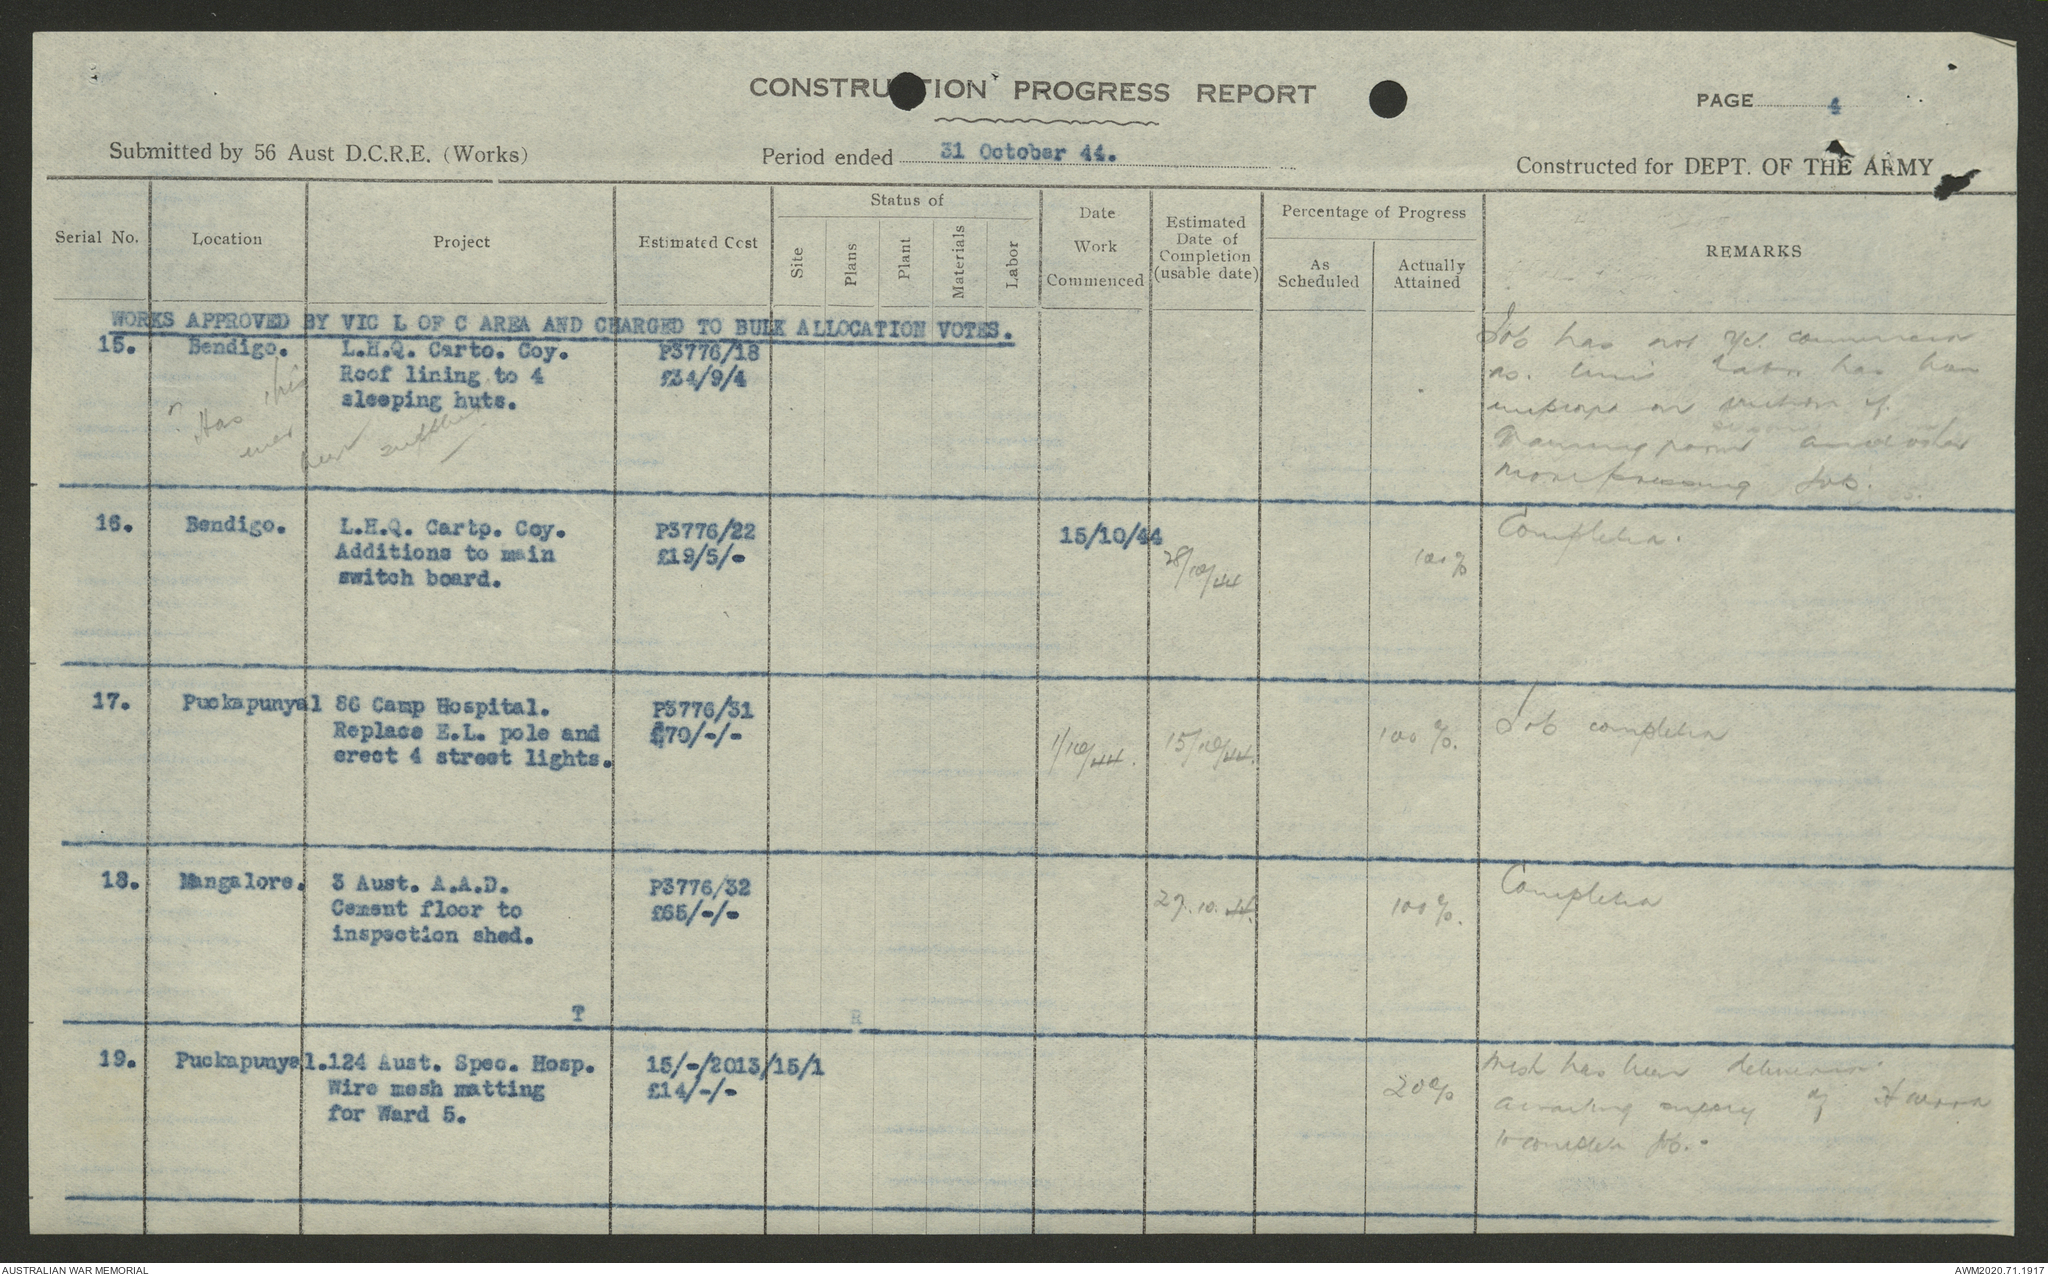 CONSTRUCTION PROGRESS REPORT
PAGE 4
Submitted by 56 Aust D.C.R.E. (Works)
Period ended 31 October 44.
Constructed for DEPT. OF THE ARMY
Serial No.
Location
Project
Estimated Cost
Status of
Site
Plans
Plant
Materials
Labor
Date
Work
Commenced
Estimated
Date of
Completion
(usable date)
Percentage of Progress
As
Scheduled
Actually
Attained
REMARKS
WORKS APPROVED BY VIC L OF C AREA AND CHARGED TO BULK ALLOCATION VOTES.
15. Bendigo. L.H.Q. Carto. Coy. P3776/18
Roof lining to 4 £34/9/4
sleeping huts.
? Has this
ever
been
Job has not yet commenced
as labor has been
on erection of
and other
more pressing jobs.
16. Bendigo. L.H.Q. Cartp. Coy. P3776/22 15/10/44
Additions to main £19/5/- 28/10/44 100%
switch board.
Completed.
17. Puckapunyal 86 Camp Hospital. P3776/31
Replace E.L. pole and £70/-/- 1/10/44. 15/10/44. 100%.
erect 4 street lights.
Job completed
18. Mangalore. 3 Aust. A.A.D. P3776/32
Cement floor to £65/-/- 27.10.44. 100%.
inspection shed.
Completed
T R
19. Puckapunyal. 124 Aust. Spec. Hosp. 15/-/2013/15/1
Wire mesh matting £14/-/- 20%
for Ward 5.
Mesh has been delivered.
Awaiting supply of
to complete job.
AUSTRALIAN WAR MEMORIAL
AWM2020.71.1917